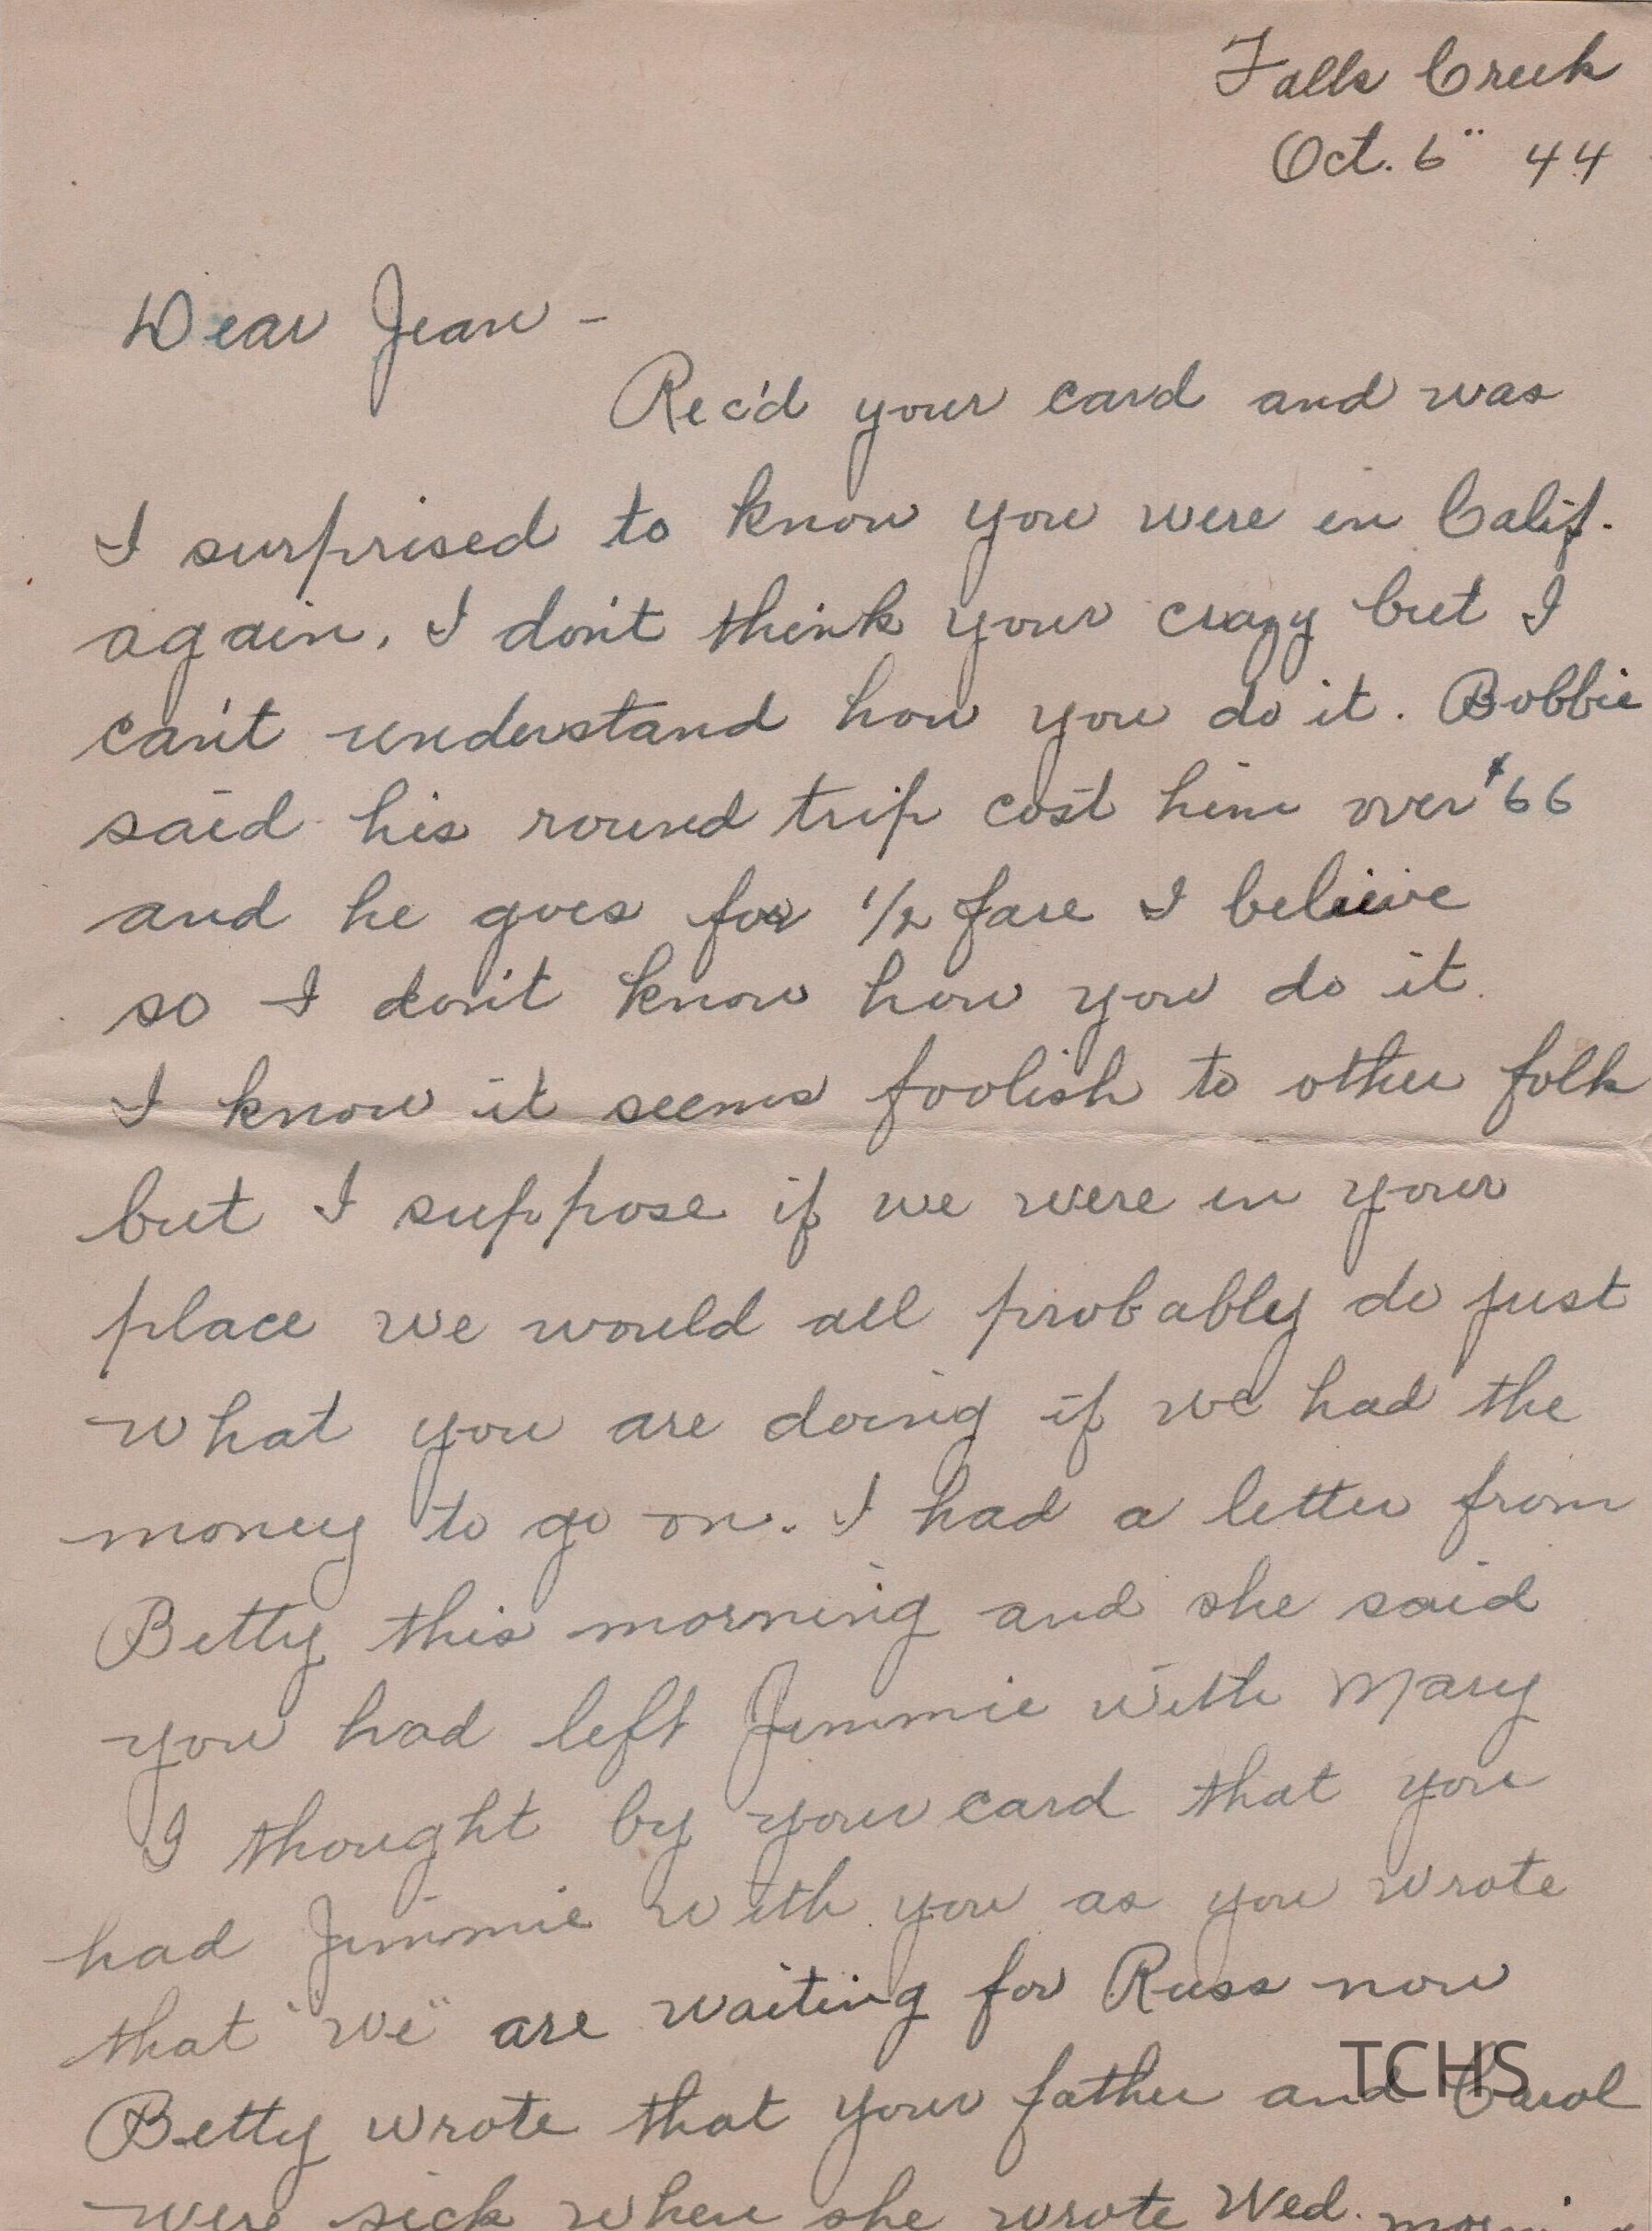 Falls Creek
Oct. 6" 44
Dear Jean -
Rec'd your card and was
I surprised to know you were in Calif.
again. I don't think your crazy but I
can't understand how you do it. Bobbie
said his round trip cost him over $66
and he goes for 1/2 fare I believe
so I don't know how you do it.
I know it seems foolish to other folk
but I suppose if we were in your
place we would all probably do just
what you are doing if we had the
money to go on. I had a letter from
Betty this morning and she said
you had left Jimmie with Mary
I thought by your card that you
had Jimmie with you as you wrote
that "we" are waiting for Russ now
TCHS
Betty wrote that your father and Carol
were sick when she wrote Wed. morning